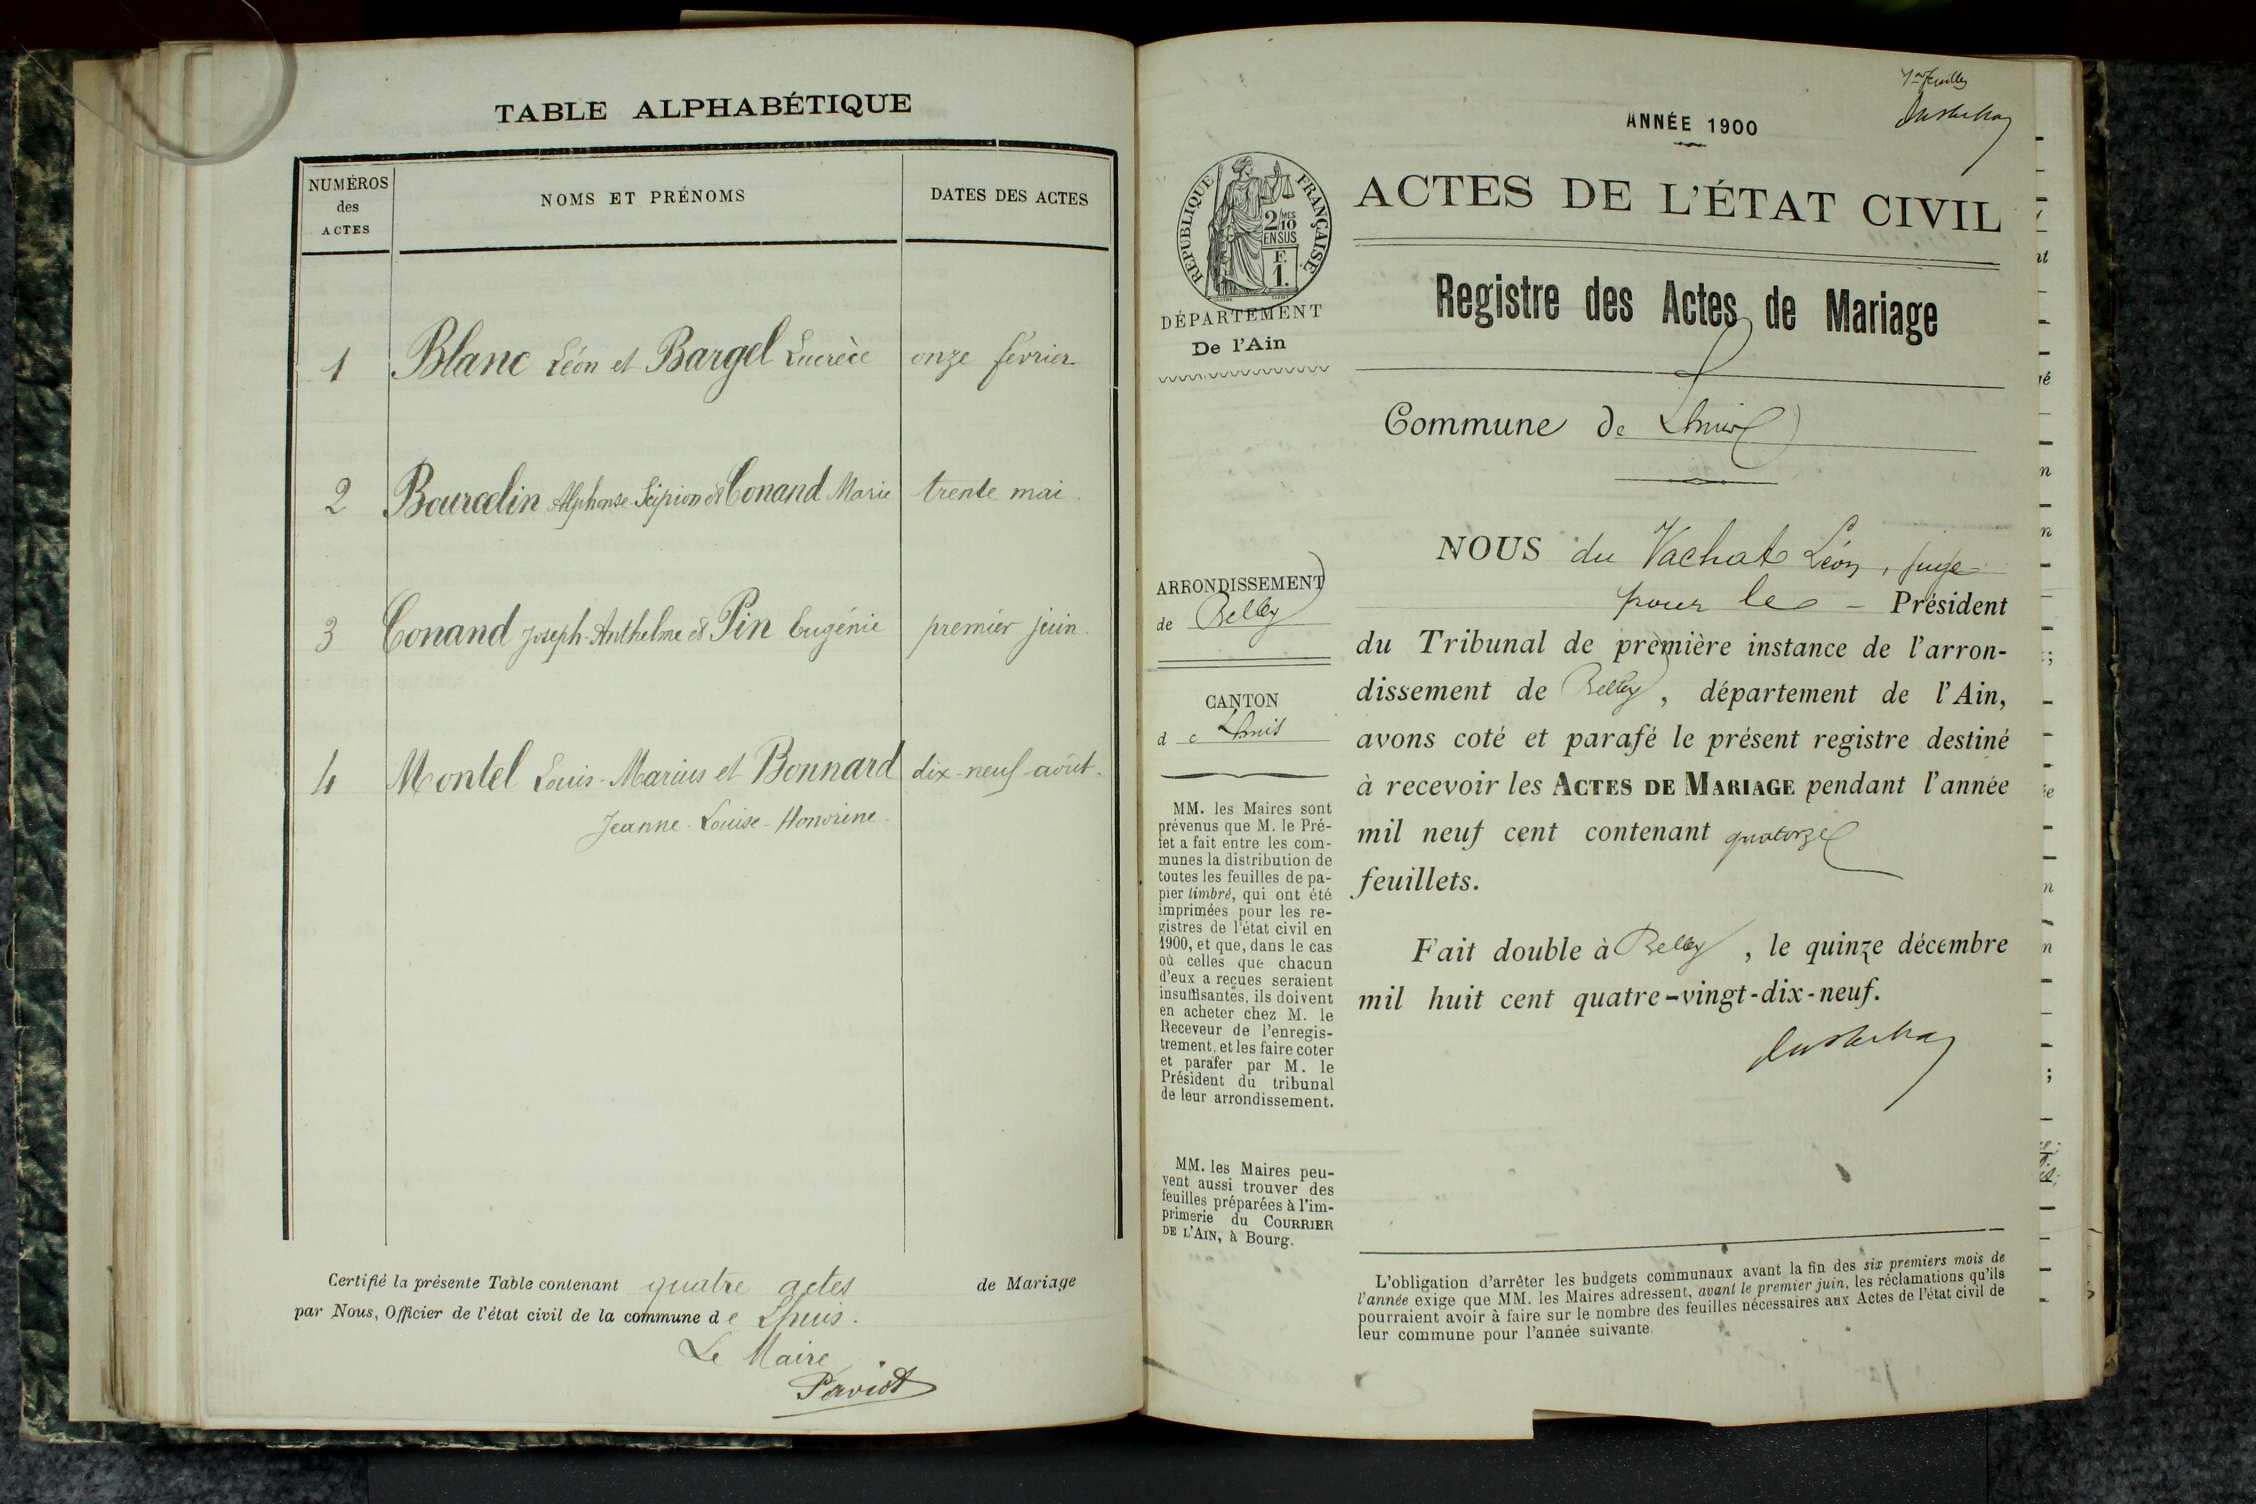 TABLE ALPHABÉTIQUE
NUMÉROS
des
ACTES
NOMS ET PRÉNOMS
DATES DES ACTES
1 Blanc Léon et Bargel Lucrèce onze février
2 Bourcelin Alphonse Scipion et Conand Marie trente mai.
3 Conand Joseph-Anthelme et Pin Eugénie premier juin.
4 Montel Louis-Marius et Bonnard dix-neuf août.
Jeanne-Louise-Honorine.
Certifié la présente Table contenant quatre actes de Mariage
par Nous, Officier de l'état civil de la commune de Lhuis.
Le Maire
1er feuillet
ANNÉE 1900
RÉPUBLIQUE FRANÇAISE
2/10 MES
EN SUS
F.
1.
DÉPARTEMENT
De l'Ain
ARRONDISSEMENT
de Belley
CANTON
de Lhuis
MM. les Maires sont
prévenus que M. le Pré-
fet a fait entre les com-
munes la distribution de
toutes les feuilles de pa-
pier timbré, qui ont été
imprimées pour les re-
gistres de l'état civil en
1900, et que, dans le cas
où celles que chacun
d'eux a reçues seraient
insuffisantes, ils doivent
en acheter chez M. le
Receveur de l'enregis-
trement, et les faire coter
et parafer par M. le
Président du tribunal
de leur arrondissement.
MM. les Maires peu-
vent aussi trouver des
feuilles préparées à l'im-
primerie du COURRIER
DE L'AIN, à Bourg.
ACTES DE L'ÉTAT CIVIL
Registre des Actes de Mariage
Commune de Lhuis
NOUS du Vachat Léon, juge
pour le - Président
du Tribunal de première instance de l'arron-
dissement de Belley, département de l'Ain,
avons coté et parafé le présent registre destiné
à recevoir les ACTES DE MARIAGE pendant l'année
mil neuf cent contenant quatorze
feuillets.
Fait double à Belley, le quinze décembre
mil huit cent quatre-vingt-dix-neuf.
L'obligation d'arrêter les budgets communaux avant la fin des six premiers mois de
l'année exige que MM. les Maires adressent, avant le premier juin, les réclamations qu'ils
pourraient avoir à faire sur le nombre des feuilles nécessaires aux Actes de l'état civil de
leur commune pour l'année suivante.